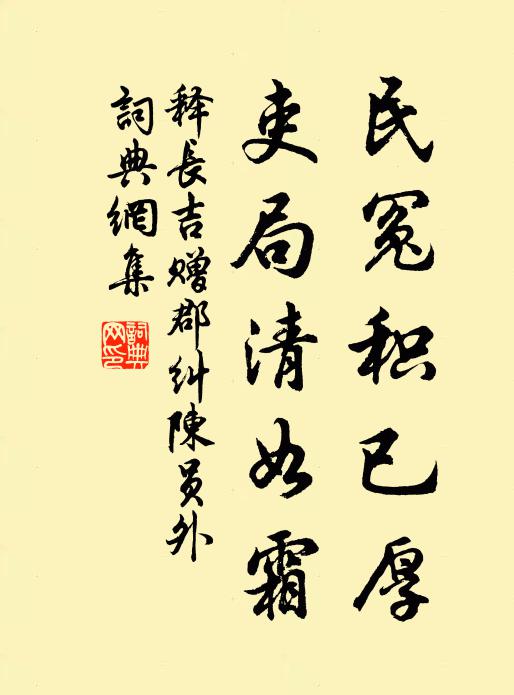 民冤积已厚
吏局清如霜
释長吉赠郡糾陳員外
詞典網集
詞典網印